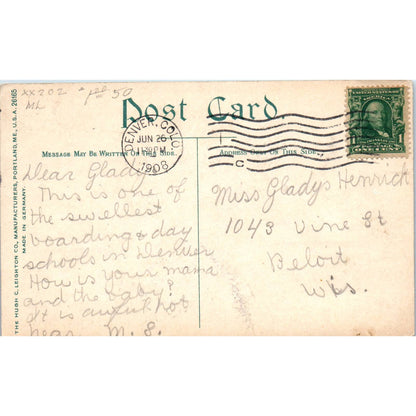 XX202
50
ML
Post Card.
DENVER, COLO.
JUN 26
1908
MESSAGE MAY BE WRITTEN ON THIS SIDE.
ADDRESS ONLY ON THIS SIDE.
C
1
THE HUGH C. LEIGHTON CO., MANUFACTURERS, PORTLAND, ME., U.S.A. 26165
MADE IN GERMANY
Dear Gladys
This is one of
the swellest
boarding & day
schools in Denver
How is your mama
and the baby?
It is awful hot
here M. S.
Miss Gladys Henrick
1043 Vine St
Beloit
Wis.